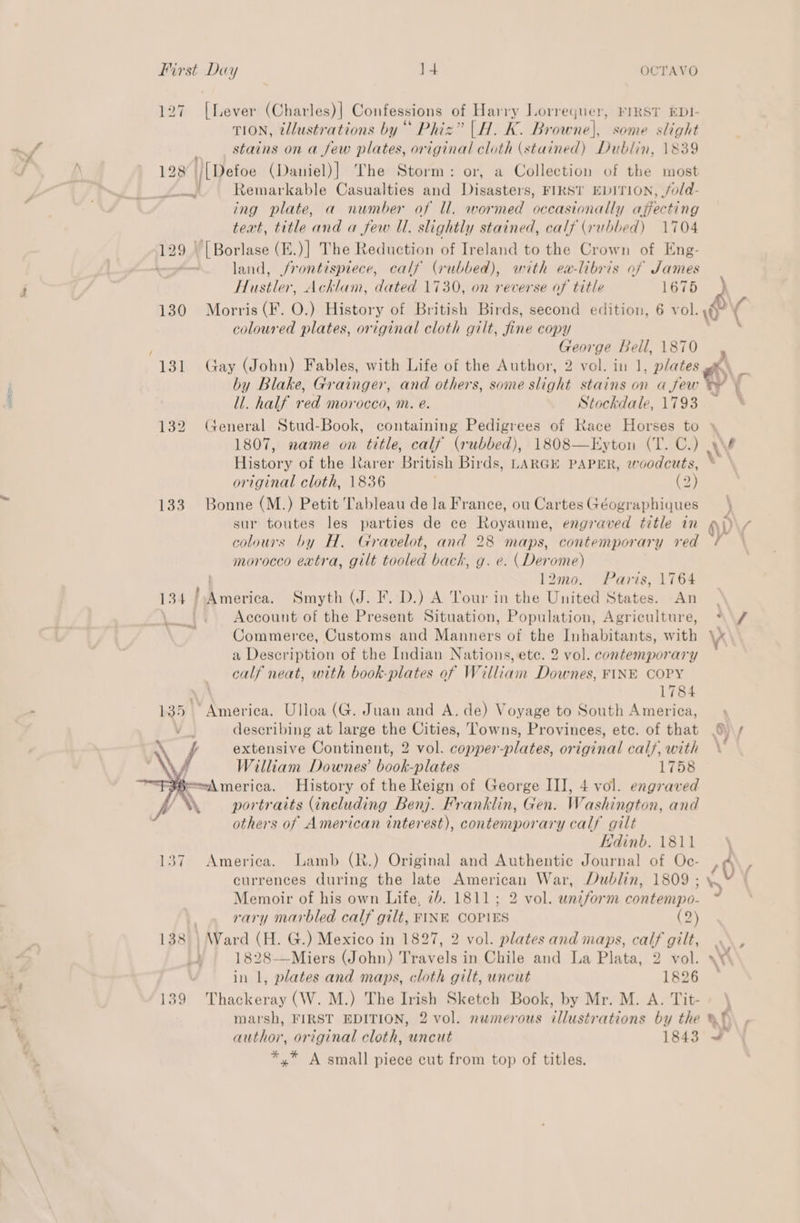 First Day 14 OCTAVO
127 [Lever (Charles)] Confessions of Harry Lorrequer, FIRST EDI-
TION, illustrations by “Phiz” [H. K. Browne], some slight
stains on a few plates, original cloth (stained) Dublin, 1839
128 [Defoe (Daniel)] The Storm: or, a Collection of the most
Remarkable Casualties and Disasters, FIRST EDITION, fold-
ing plate, a number of ll. wormed occasionally affecting
text, title and a few ll. slightly stained, calf (rubbed) 1704
129 [Borlase (E.)] The Reduction of Ireland to the Crown of Eng-
land, frontispiece, calf (rubbed), with ex-libris of James
Hustler, Acklam, dated 1730, on reverse of title 1675
130 Morris (F. O.) History of British Birds, second edition, 6 vol.
coloured plates, original cloth gilt, fine copy
George Bell, 1870
131 Gay (John) Fables, with Life of the Author, 2 vol. in 1, plates
by Blake, Grainger, and others, some slight stains on a few
ll. half red morocco, m. e. Stockdale, 1793
132 General Stud-Book, containing Pedigrees of Race Horses to
1807, name on title, calf (rubbed), 1808—Eyton (T. C.)
History of the Rarer British Birds, LARGE PAPER, woodcuts,
original cloth, 1836 (2)
133 Bonne (M.) Petit Tableau de la France, ou Cartes Géographiques
sur toutes les parties de ce Royaume, engraved title in
colours by H. Gravelot, and 28 maps, contemporary red
morocco extra, gilt tooled back, g. e. (Derome)
12mo. Paris, 1764
134 America. Smyth (J. F. D.) A Tour in the United States. An
Account of the Present Situation, Population, Agriculture,
Commerce, Customs and Manners of the Inhabitants, with
a Description of the Indian Nations, etc. 2 vol. contemporary
calf neat, with book-plates of William Downes, FINE COPY
1784
135 America. Ulloa (G. Juan and A. de) Voyage to South America,
describing at large the Cities, Towns, Provinces, etc. of that
extensive Continent, 2 vol. copper-plates, original calf, with
William Downes’ book-plates 1758
136 America. History of the Reign of George III, 4 vol. engraved
portraits (including Benj. Franklin, Gen. Washington, and
others of American interest), contemporary calf gilt
Edinb. 1811
137 America. Lamb (R.) Original and Authentic Journal of Oc-
currences during the late American War, Dublin, 1809;
Memoir of his own Life, ib. 1811; 2 vol. uniform contempo-
rary marbled calf gilt, FINE COPIES (2)
138 Ward (H. G.) Mexico in 1827, 2 vol. plates and maps, calf gilt,
1828—Miers (John) Travels in Chile and La Plata, 2 vol.
in 1, plates and maps, cloth gilt, uncut 1826
139 Thackeray (W. M.) The Irish Sketch Book, by Mr. M. A. Tit-
marsh, FIRST EDITION, 2 vol. numerous illustrations by the
author, original cloth, uncut 1843
*⁎* A small piece cut from top of titles.